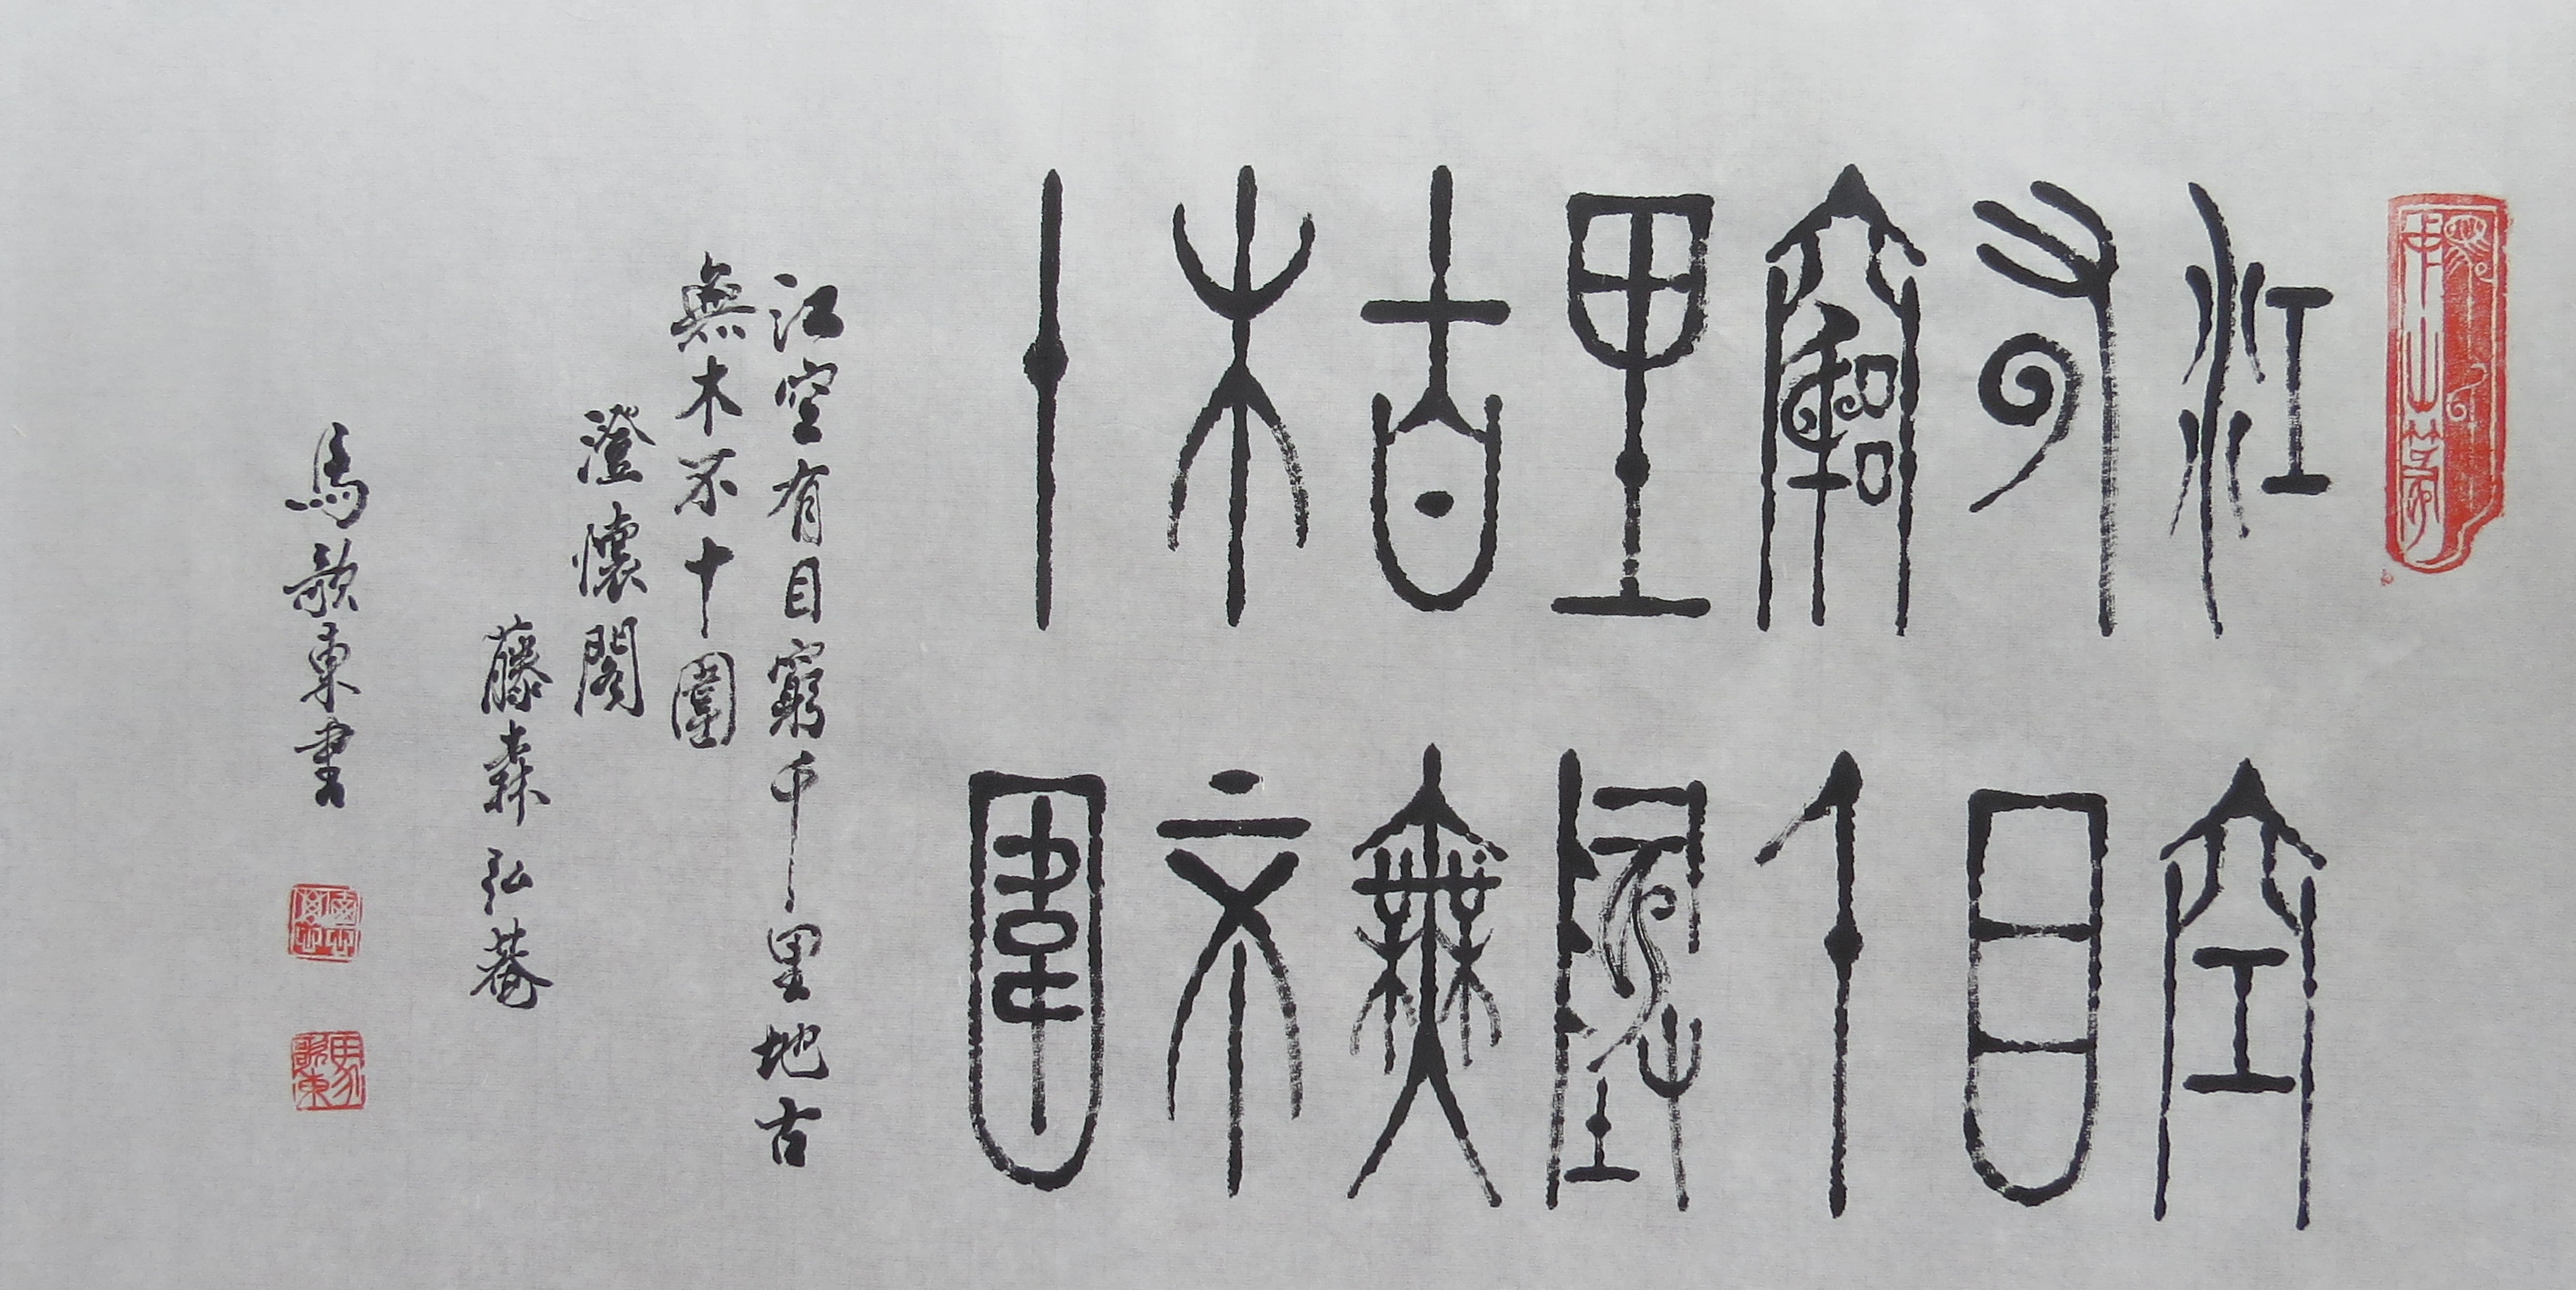 江空
有目
窮千
里地
古無
木不
十圍
江空有目窮千里地古
無木不十圍
澄懷閣
藤森弘菴
馬歌東書
馬歌東